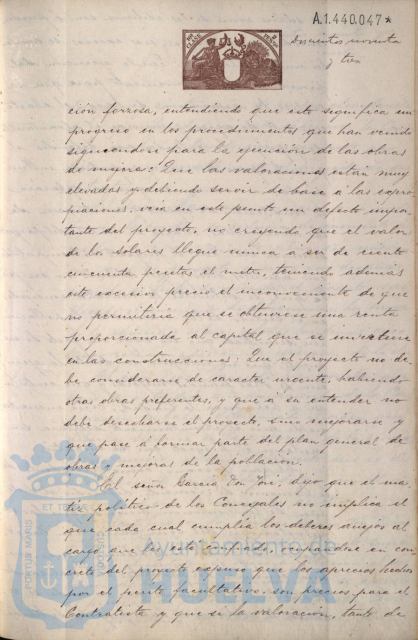 A.1.440.047*
Doscientos noventa
y tres
ción forzosa, entendiendo que esto significa un
progreso en los procedimientos que han venido
siguiendose para la ejecución de las obras
de mejora: Que las valoraciones están muy
elevadas y debiendo servir de base a las expro-
piaciones, veia en este punto un defecto impor-
tante del proyecto, no creyendo que el valor
de los solares llegue nunca á ser de ciento
cincuenta pesetas el metro, teniendo además
este excesivo precio el inconveniente de que
no permitiria que se obtuviese una renta
proporcionada al capital que se invirtiese
en las construcciones: Que el proyecto no de-
be considerarse de caracter urgente, habiendo
otras obras preferentes, y que á su entender no
debe desecharse el proyecto, sino mejorarse y
que pase á formar parte del plan general de
obras y mejoras de la población.
El señor Garcia, Don José, dijo que el ma-
tiz politico de los Concejales no implica el
que cada cual cumpla los deberes anejos al
cargo que les está confiado, ocupandose en con-
creto del proyecto expuso que los aprecios hechos
por el perito facultativo son precios para el
Contratista y que si la valoración, tanto de
PORTUS MARIS
ET TERRÆ
CUSTODIA
Ayuntamiento de
HUELVA